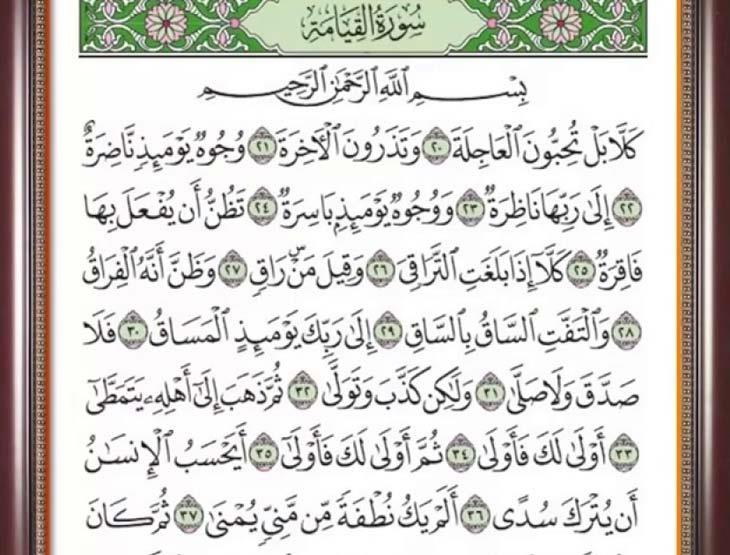 سُورَةُ الْقِيَامَةِ
بِسْمِ اللَّهِ الرَّحْمَٰنِ الرَّحِيمِ
كَلَّا بَلْ تُحِبُّونَ الْعَاجِلَةَ ٢٠ وَتَذَرُونَ الْآخِرَةَ ٢١ وُجُوهٌ يَوْمَئِذٍ نَّاضِرَةٌ
٢٢ إِلَىٰ رَبِّهَا نَاظِرَةٌ ٢٣ وَوُجُوهٌ يَوْمَئِذٍ بَاسِرَةٌ ٢٤ تَظُنُّ أَن يُفْعَلَ بِهَا
فَاقِرَةٌ ٢٥ كَلَّا إِذَا بَلَغَتِ التَّرَاقِيَ ٢٦ وَقِيلَ مَنْ رَاقٍ ٢٧ وَظَنَّ أَنَّهُ الْفِرَاقُ
٢٨ وَالْتَفَّتِ السَّاقُ بِالسَّاقِ ٢٩ إِلَىٰ رَبِّكَ يَوْمَئِذٍ الْمَسَاقُ ٣٠ فَلَا
صَدَّقَ وَلَا صَلَّىٰ ٣١ وَلَٰكِن كَذَّبَ وَتَوَلَّىٰ ٣٢ ثُمَّ ذَهَبَ إِلَىٰ أَهْلِهِ يَتَمَطَّىٰ
٣٣ أَوْلَىٰ لَكَ فَأَوْلَىٰ ٣٤ ثُمَّ أَوْلَىٰ لَكَ فَأَوْلَىٰ ٣٥ أَيَحْسَبُ الْإِنسَانُ
أَن يُتْرَكَ سُدًى ٣٦ أَلَمْ يَكُ نُطْفَةً مِّن مَّنِيٍّ يُمْنَىٰ ٣٧ ثُمَّ كَانَ